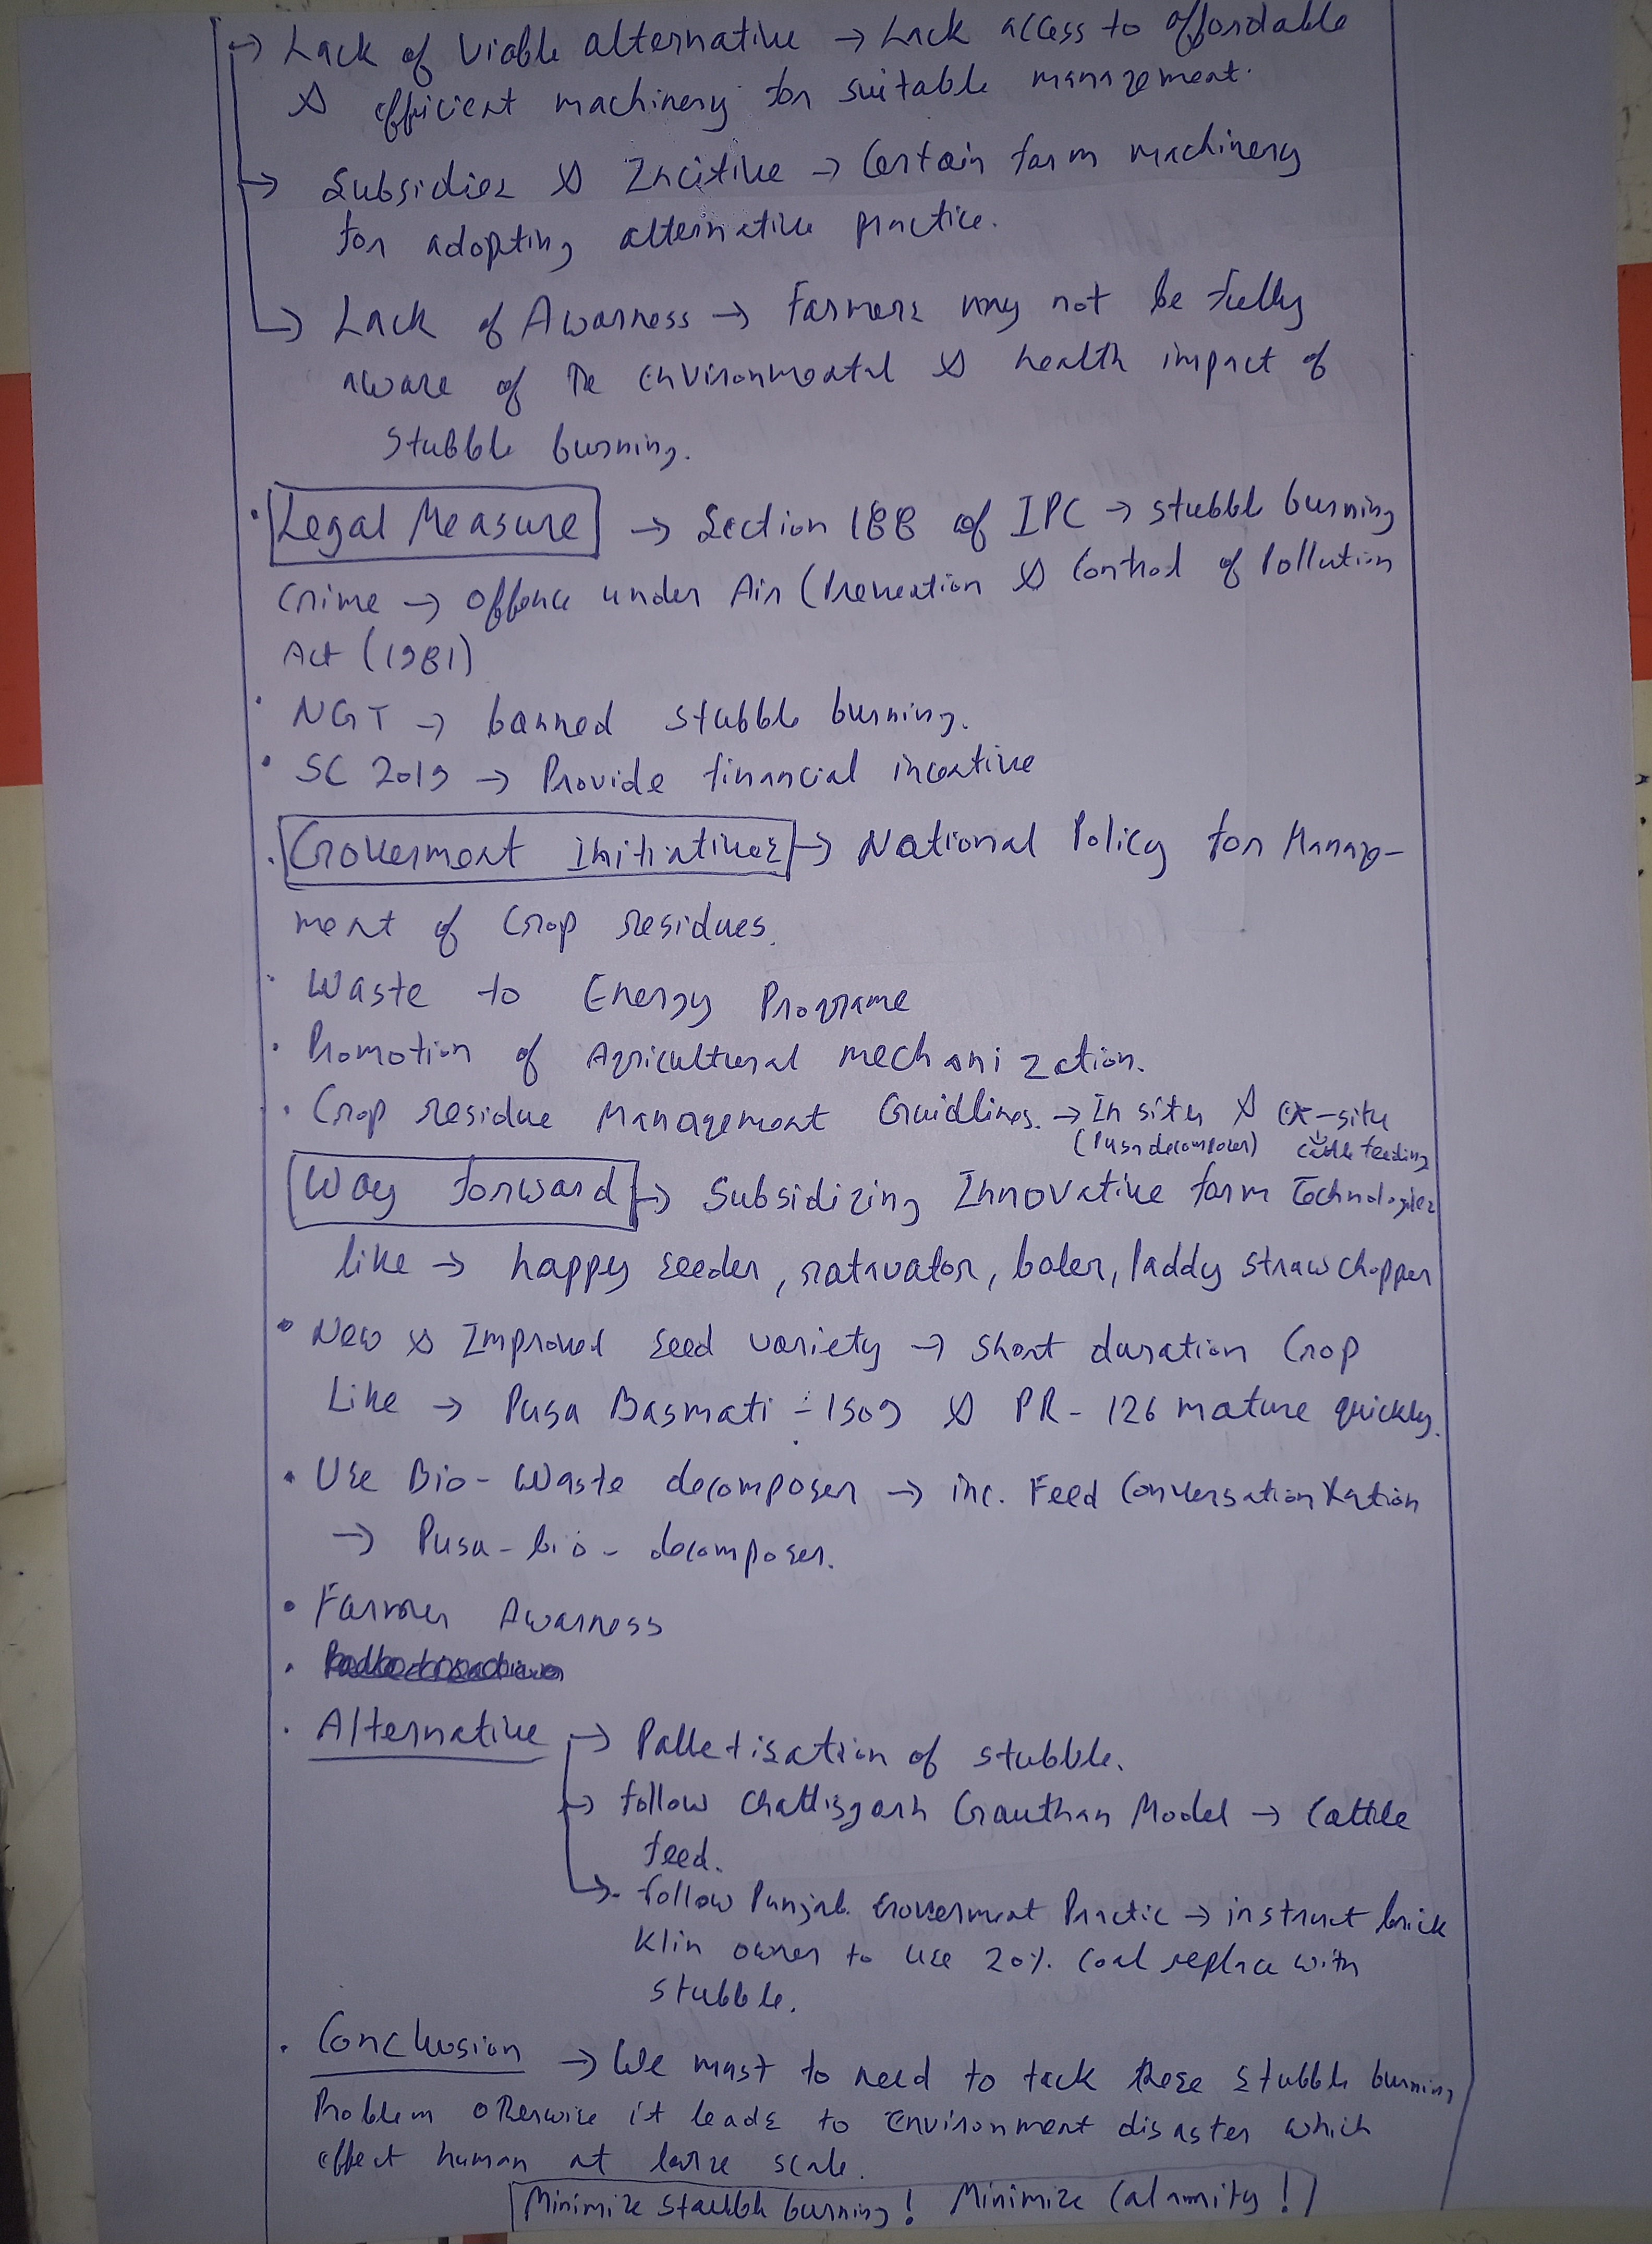 → Lack of Viable alternative → Lack access to affordable
& efficient machinery for suitable management.
→ Subsidies & Incitive → Certain farm machinery
for adopting alternative practice.
→ Lack of Awarness → Farmers may not be fully
aware of the environmental & health impact of
Stubble burning.
• Legal Measure → Section 188 of IPC → stubble burning
Crime → offence under Air (Prevention & Control of Pollution
Act (1981)
• NGT → banned stubble burning.
• SC 2019 → Provide financial incentive
• Goverment Initiatives → National Policy for Manag-
ment of Crop residues.
• Waste to Energy Programe
• Promotion of Agricultural mechanization.
• Crop residue Management Guidlines. → In situ & ex-situ
(Pusa decomposer) ↓ cattle feeding
Way forward → Subsidizing Innovative farm Technologies
like → happy seeder, rotavator, baler, Paddy straw chopper
• New & Improved seed variety → Short duration Crop
Like → Pusa Basmati - 1509 & PR - 126 mature quickly.
• Use Bio-Waste decomposer → inc. Feed Conversation
→ Pusa-bio-decomposer.
• Farmer Awarness
•
• Alternative → Palletisation of stubble.
→ follow Chattisgarh Gauthan Model → Cattle
feed.
→ follow Punjab Goverment Practic → instruct brick
Klin owner to use 20% Coal replace with
stubble.
• Conclusion → We mast to need to tack these stubble burning
Problem otherwise it leads to Environment disaster which
effect human at large scale.
Minimize stubble burning! Minimize Calamity!